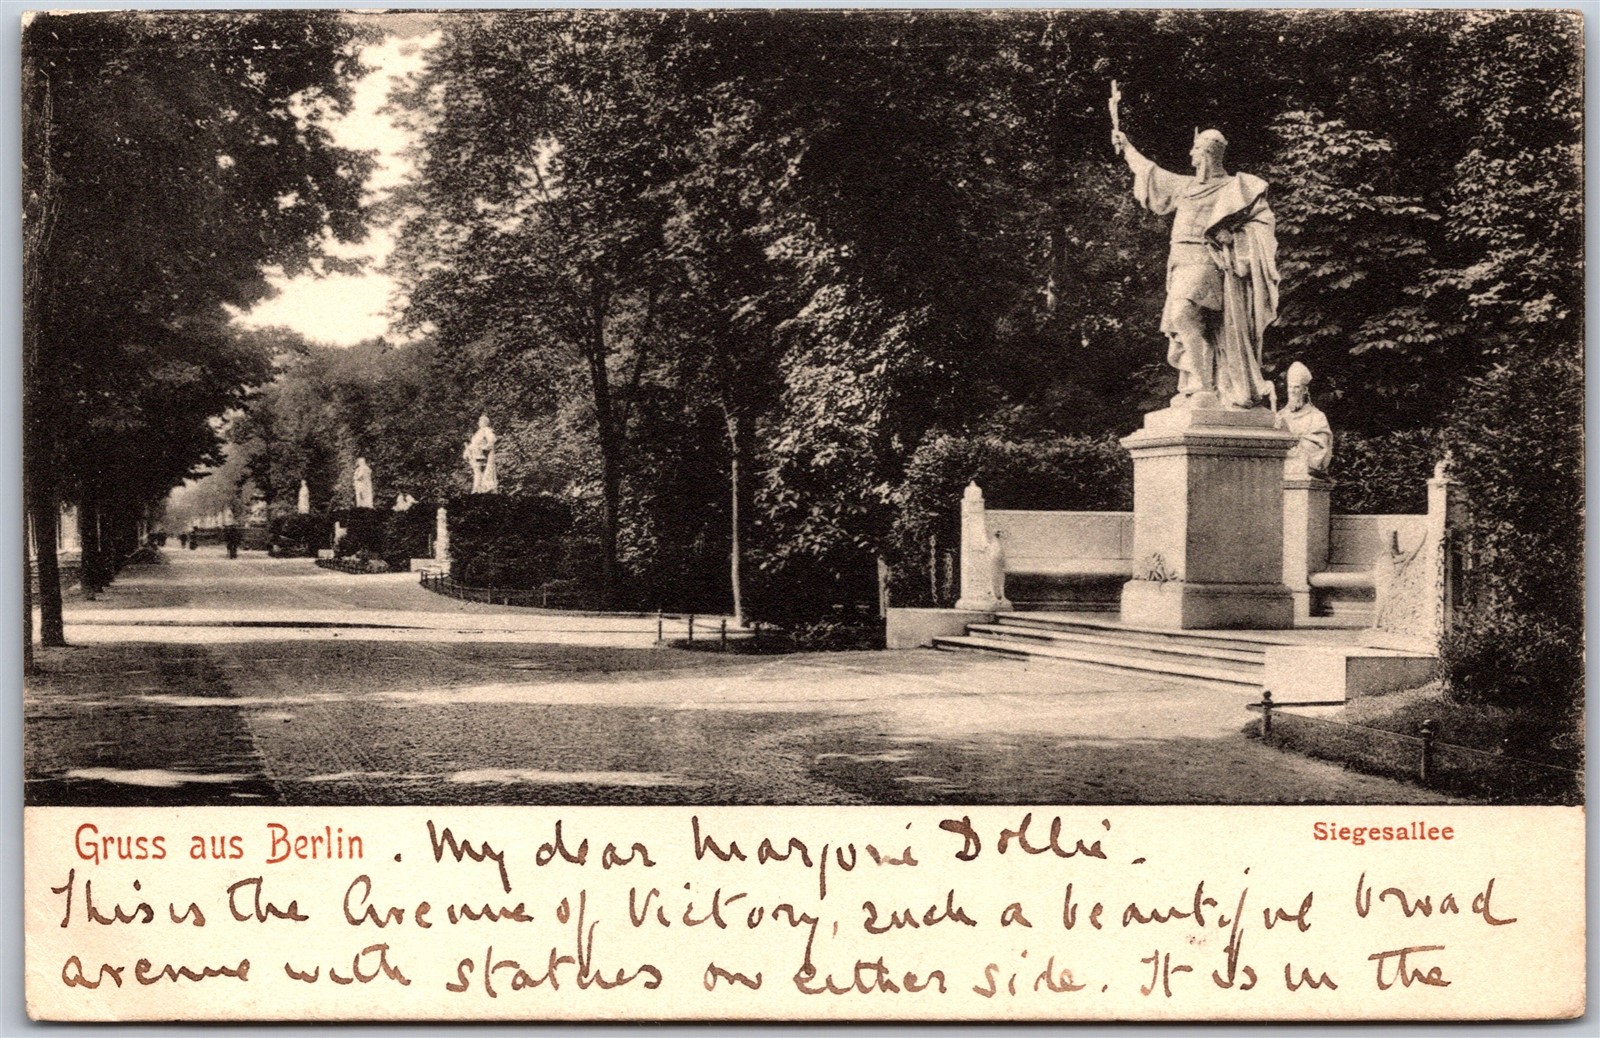 Gruss aus Berlin . My dear Marjorie Dollie. Siegesallee
This is the Avenue of Victory, such a beautiful broad
avenue with statues on either side. It is in the